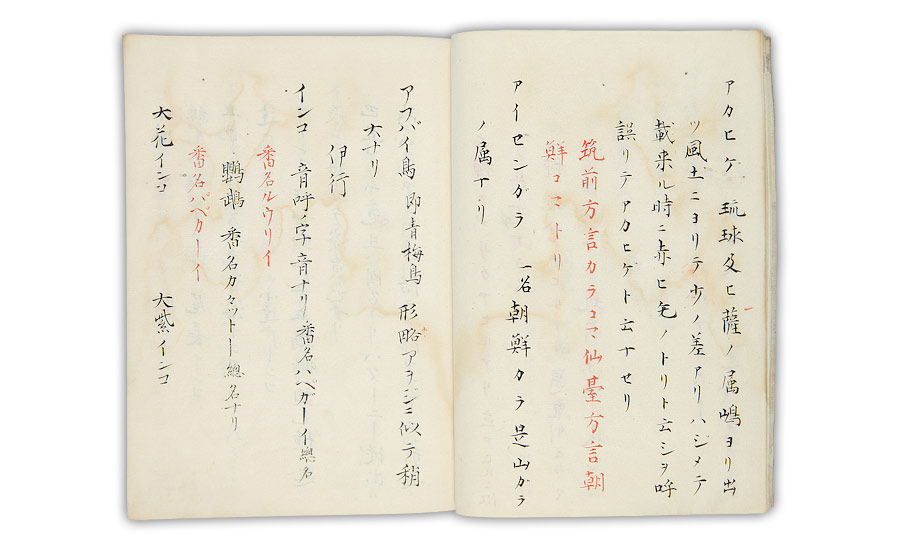 アカヒゲ 琉球及ヒ薩ノ属嶋ヨリ出
ツ風土ニヨリテ少ノ差アリハジメテ
載来ル時ニ赤ヒ毛ノトリト云シヲ呼
誤リテアカヒゲト云ナセリ
筑前方言カラコマ仙臺方言朝
鮮コマトリ
アイセンガラ 一名朝鮮カラ是山ガラ
ノ属ナリ
アフバイ鳥 即青梅鳥 形略アヲジニ似テ稍
大ナリ
伊行
インコ 音呼ノ字音ナリ番名ハベガーイ總名
番名ルウリイ
鸚鵡 番名カヽットー總名ナリ
番名バベカーイ
大花インコ 大紫インコ